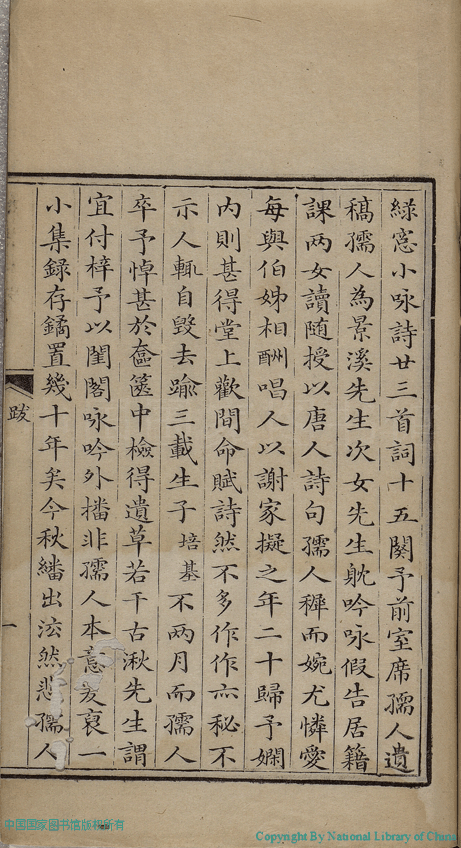 綠窓小咏詩廿三首詞十五闋予前室席孺人遺
稿孺人為景溪先生次女先生躭吟咏假告居籍
課两女讀随授以唐人詩句孺人穉而婉尤憐愛
每與伯姊相酬唱人以謝家擬之年二十歸予嫻
内則甚得堂上歡間命賦詩然不多作作亦秘不
示人輒自毀去踰三載生子培基不两月而孺人
卒予悼甚於奩篋中檢得遺草若干古湫先生謂
宜付梓予以閨閣咏吟外播非孺人本意爰裒一
小集録存鐍置幾十年矣今秋繙出泫然悲孺人
跋
一
中国国家图书馆版权所有
Copyright By National Library of China